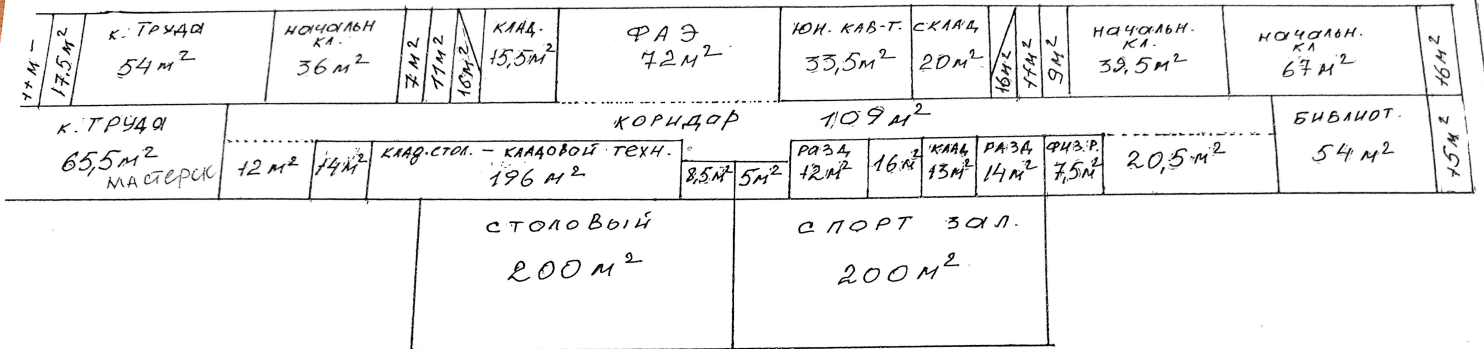 11 м²
17.5 м²
к. ТРУДА
54 м²
начальн
кл.
36 м²
7 м²
11 м²
16 м²
КЛАД.
15,5 м²
ФАЭ
72 м²
ЮН. КАВ-Т.
33,5 м²
СКЛАД
20 м²
16 м²
11 м²
9 м²
начальн.
кл.
39,5 м²
начальн.
кл
67 м²
16 м²
к. ТРУДА
65,5 м²
мастерск
КОРИДАР 109 м²
12 м²
14 м²
КЛАД.СТОЛ. - КЛАДОВОЙ ТЕХН.
196 м²
8,5 м²
5 м²
РАЗД
12 м²
16 м²
КЛАД
13 м²
РАЗД
14 м²
ФИЗ.Р.
7,5 м²
20,5 м²
БИБЛИОТ.
54 м²
15 м²
СТОЛОВЫЙ
200 м²
СПОРТ ЗАЛ.
200 м²